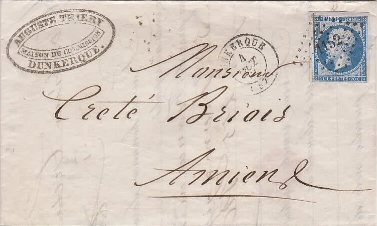 AUGUSTE THIERY
MAISON DE
DUNKERQUE.
DUNKERQUE
4
Monsieur
Creté Briois
Amiens